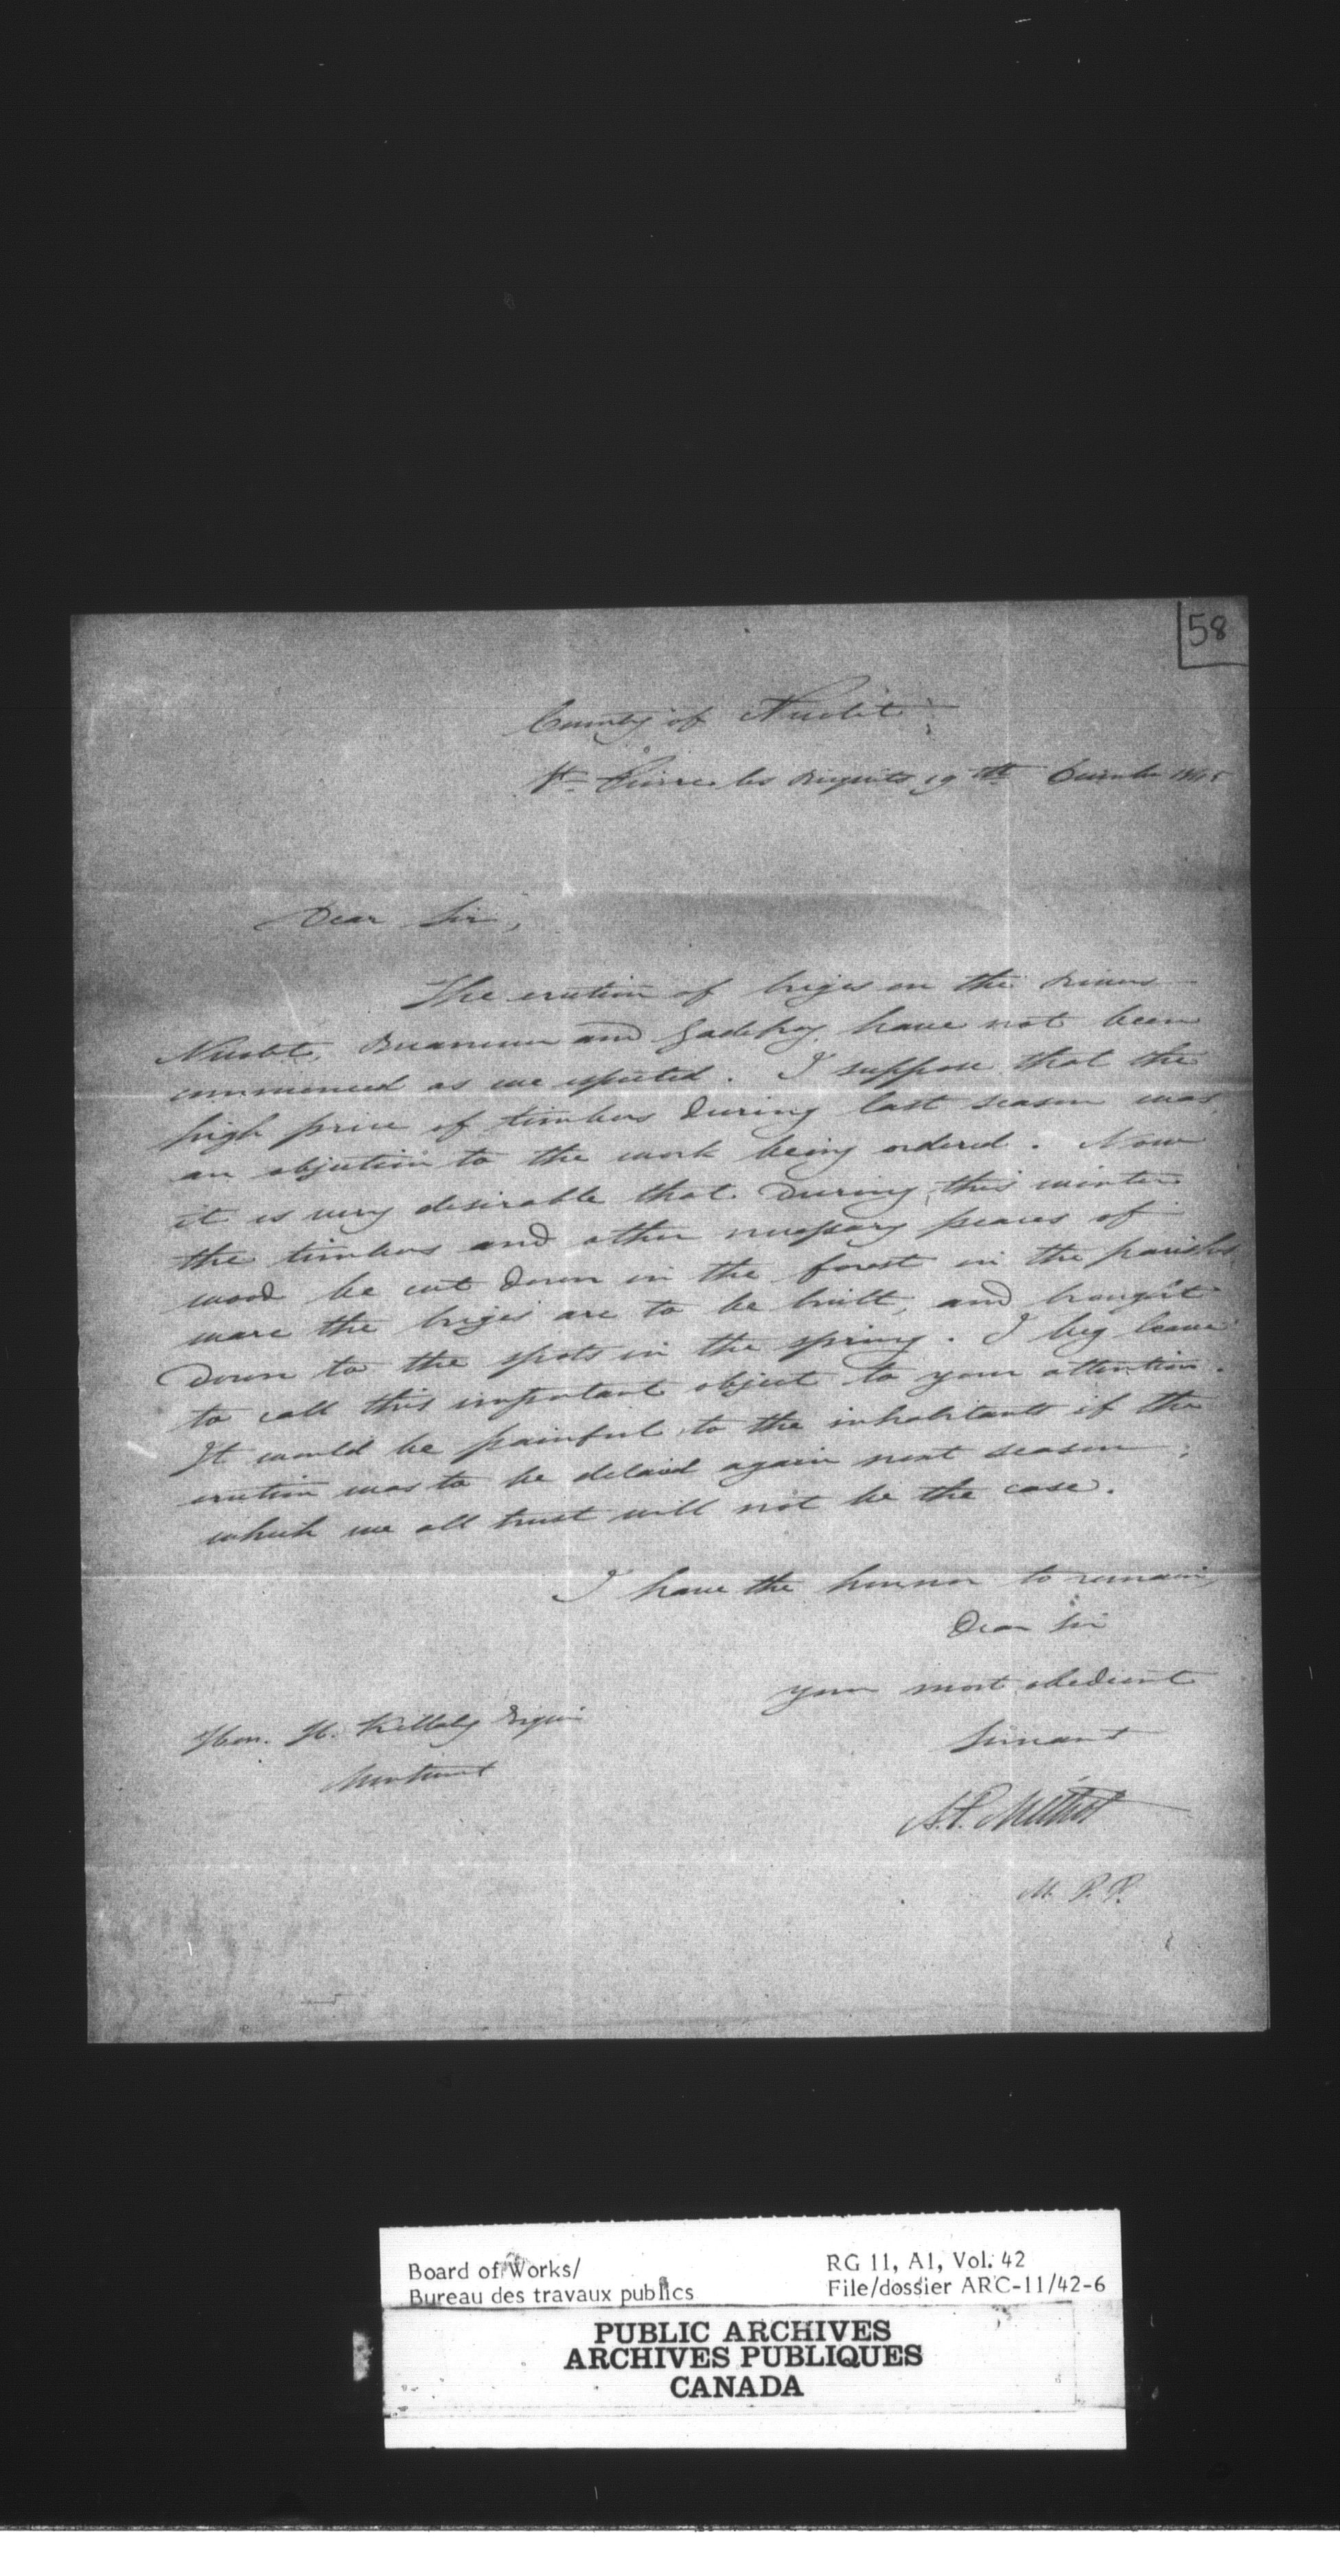 58
County of Nicolet
St. Pierre les Becquets 19th December 1845
Dear Sir,
The erection of briges on the rivers
Nicolet, Becancour and Godefroy, have not been
commenced as we expected. I suppose that the
high price of timbers during last season was
an objection to the work being ordered. Now
it is very desirable that during this winter
the timbers and other necessary peaces of
wood be cut down in the forest in the parishes
ware the briges are to be built, and brought
down to the spots in the spring. I beg leave
to call this important object to your attention.
It would be painful to the inhabitants if the
erection was to be delaid again next season;
which we all trust will not be the case.
I have the honnor to remain,
Dear Sir
your most obedient
Servant
Hon. H. Killaly
Montreal
A.P. Methot
M. P. P.
Board of Works/
Bureau des travaux publics
RG 11, A1, Vol. 42
File/dossier ARC-11/42-6
PUBLIC ARCHIVES
ARCHIVES PUBLIQUES
CANADA